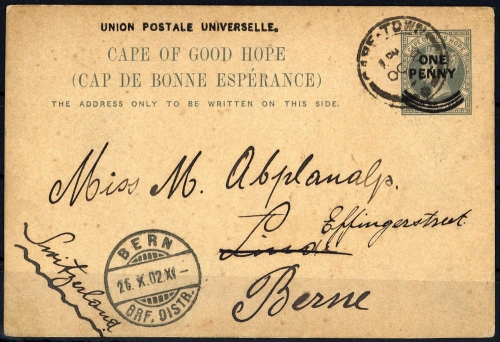 UNION POSTALE UNIVERSELLE.
CAPE OF GOOD HOPE
(CAP DE BONNE ESPÉRANCE)
THE ADDRESS ONLY TO BE WRITTEN ON THIS SIDE.
CAPE·TOWN
OC
ONE
PENNY
Miss M. Abplanalp.
Effingerstreet
Berne
Switzerland
BERN
26.X.02.XI–
BRF. DISTR.